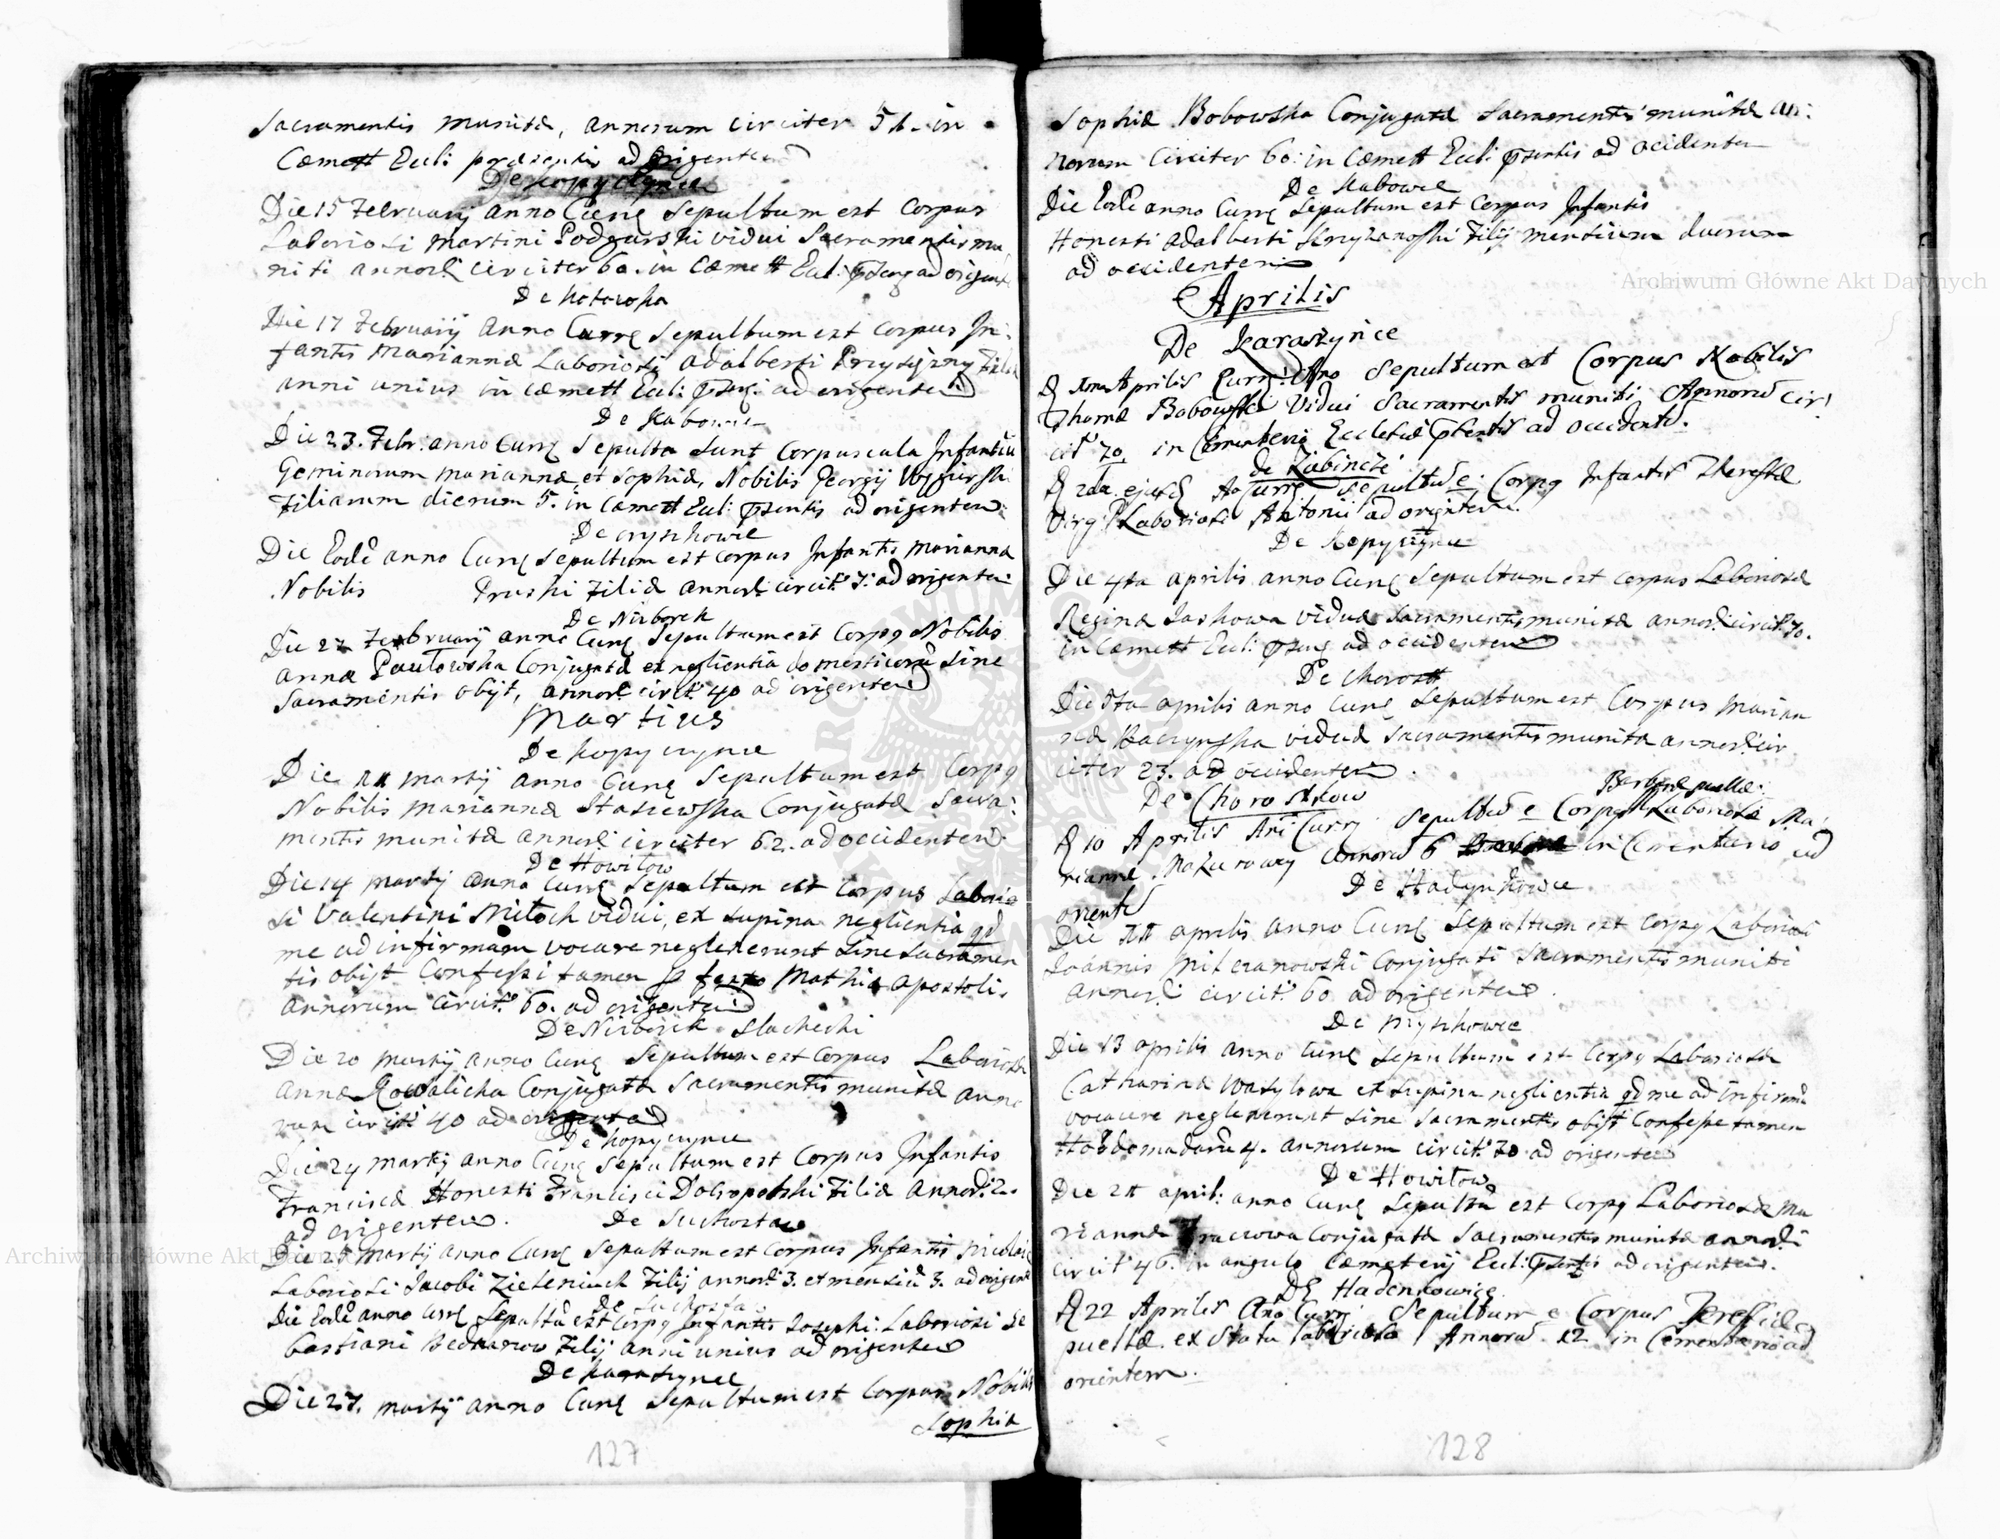 Sacramentis munitæ, annorum circiter 56. in
Cæmett Eccli: præsentis ad origentem
De Kopyczynce
Die 15 Februarij anno Curre Sepultum est Corpus
Laboriosi Martini Podgurski vidui Sacramentis mu
niti annorū circiter 60. in Cæmett Eccl: ad origent
De Kotowka
Die 17 Februarij Anno Curre Sepultum est Corpus In:
fantis Mariannæ Laboriosi Adalberti Filiæ
anni unius in Cæmett Eccl: ad origentem
De
Die 23. Febr: anno Curre Sepulta sunt Corpuscula Infantiū
Geminorum Mariannæ et Sophiæ, Nobilis Georgij
Filiarum dierum 5. in Cæmett Eccl: ad origentem
De
Die Eodē anno Curre Sepultum est Corpus Infantis Mariannæ
Nobilis Filiæ annorū circit: 7. ad origentem
De Niżborek
Die 27 Februarij anno Curre Sepultum est Corpq Nobilis
Annæ Pawłowska Conjugatæ ex neglientia domesticorū sine
Sacramentis obijt, annorū circit: 40 ad origentem
Martius
De Kopyczynce
Die Martij anno Curre Sepultum est Corpq
Nobilis Mariannæ Stasiewska Conjugatæ Sacra:
mentis munitæ annorū circiter 62. ad occidentem
De Howiłow
Die 14 Martij anno Curre Sepultum est Corpus Laborio
si Valentini vidui, ex supina neglientia qd
me ad infirmam vocare neglexerunt sine Sacramen
tis obijt Confessi tamen festo Mathiæ Apostoli.
Annorum circit: 60. ad origentem
De Niżborek Slachecki
Die 20 Martij anno Curre Sepultum est Corpus Laboriosæ
Annæ Kowalicha Conjugatæ Sacramentis munitæ anno
rum circit: 40 ad origentem
De Kopyczynce
Die 24 Martij anno Curre Sepultum est Corpus Infantis
Franciscæ Honesti Francisci Filiæ Annorū 2.
ad origentem.
De Suchostaw
Die 25 Martij anno Curre Sepultum est Corpus Infantis Nicolai
Laboriosi Jacobi Zieleniuch Filij annorū 3. et mensiū 3. ad origent
De Suchosta
Die Eodē anno Curre Sepultū est Corpq Infantis Josephi Laboriosi Se
bastiani Bednarow Filij anni unius ad origentem
De Karaszynce
Die 27. Martij anno Curre Sepultum est Corpus Nobilis
Sophiæ
127
Sophiæ Bobowska Conjugatæ Sacramentis munitæ an:
norum circiter 60: in Cæmett Eccl: ad ocidentem
De
Die Eodē anno Curre Sepultum est Corpus Infantis
Honesti Adalberti Filij mensium duorum
ad occidentem
Aprilis
De Karaszynce
D 1ma Aprilis Curre Ano Sepultum est Corpus Nobilis
Thomæ Bobowski Vidui Sacramentis muniti Annorū Cir:
citr 70 in Ecclesiæ ad Occidentē.
de Żabincze
D 2da ejusd Ao Curre Sepultū e: Corpq Infantis Theresiæ
Virg: Laboriosi Antonii ad orientem.
De Kopyczynce
Die 4ta Aprilis anno Curre Sepultum est Corpus Laboriosæ
Reginæ viduæ Sacramentis munitæ annorū circit: 70.
in Cæmett Eccl: ad occidentem
De Chorost
Die Aprilis anno Curre Sepultum est Corpus Marian
næ viduæ Sacramentis munitæ annorū cir
citer 23. ad occidentem.
De Chorostkow
Barbaræ puellæ:
D 10 Aprilis Ani Curr: Sepultū e Corpq Laboriosæ Ma:
riannæ Mazurowey annorū 6 in Cimenterio ad
orientē
De Hadynkowce
Die Aprilis anno Curre Sepultum est Corpq Laboriosi
Joannis Conjugati Sacramentis muniti
Annorū circit: 60 ad origentem.
De
Die 13 Aprilis anno Curre Sepultum est Corpq Laboriosæ
Catharinæ Wasylowa ex supina neglientia qd me ad infirmā
vocare neglexerunt sine Sacramentis obijt Confessæ tamen
Hebdomadarū 4. annorum circit: 70 ad origentem
De Howiłow
Die April: anno Curre Sepultū est Corpq Laboriosæ Ma
riannæ Conjugatæ Sacramentis munitæ annorū
circit: 46. in angulo Cæmeterij Eccl: ad origentem.
De Hadenkowice
D 22 Aprilis Ano Curr: Sepultum e Corpus Teressiæ
puellæ ex statu laborioso Annorū 12 in Cementerio ad
orientem.
128
Archiwum Główne Akt Dawnych
Archiwum Główne Akt Dawnych